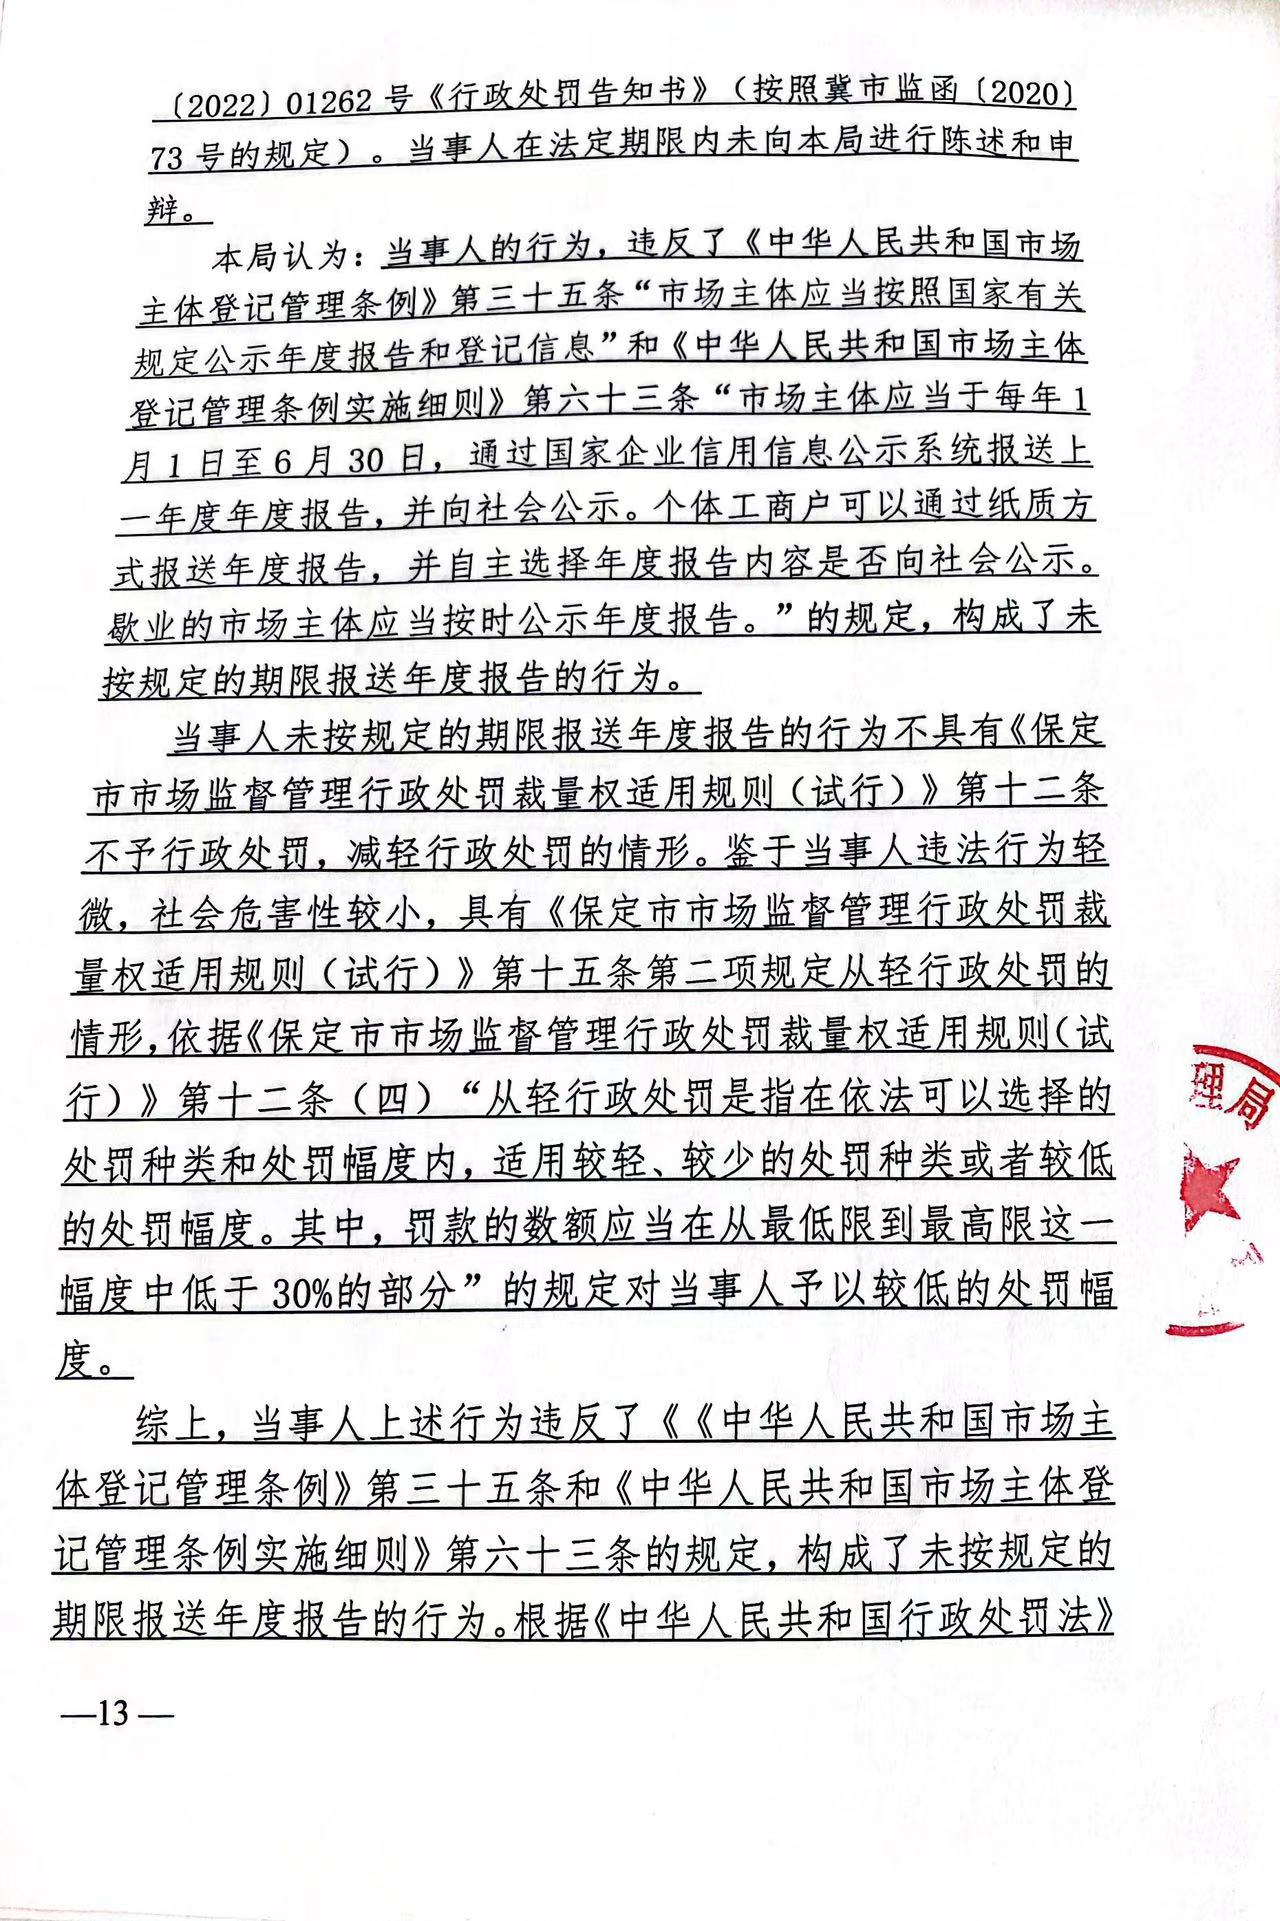 〔2022〕01262号《行政处罚告知书》（按照冀市监函〔2020〕
73号的规定）。当事人在法定期限内未向本局进行陈述和申
辩。
本局认为：当事人的行为，违反了《中华人民共和国市场
主体登记管理条例》第三十五条“市场主体应当按照国家有关
规定公示年度报告和登记信息”和《中华人民共和国市场主体
登记管理条例实施细则》第六十三条“市场主体应当于每年1
月1日至6月30日，通过国家企业信用信息公示系统报送上
一年度年度报告，并向社会公示。个体工商户可以通过纸质方
式报送年度报告，并自主选择年度报告内容是否向社会公示。
歇业的市场主体应当按时公示年度报告。”的规定，构成了未
按规定的期限报送年度报告的行为。
当事人未按规定的期限报送年度报告的行为不具有《保定
市市场监督管理行政处罚裁量权适用规则（试行）》第十二条
不予行政处罚，减轻行政处罚的情形。鉴于当事人违法行为轻
微，社会危害性较小，具有《保定市市场监督管理行政处罚裁
量权适用规则（试行）》第十五条第二项规定从轻行政处罚的
情形，依据《保定市市场监督管理行政处罚裁量权适用规则（试
行）》第十二条（四）“从轻行政处罚是指在依法可以选择的
处罚种类和处罚幅度内，适用较轻、较少的处罚种类或者较低
的处罚幅度。其中，罚款的数额应当在从最低限到最高限这一
幅度中低于30%的部分”的规定对当事人予以较低的处罚幅
度。
综上，当事人上述行为违反了《《中华人民共和国市场主
体登记管理条例》第三十五条和《中华人民共和国市场主体登
记管理条例实施细则》第六十三条的规定，构成了未按规定的
期限报送年度报告的行为。根据《中华人民共和国行政处罚法》
—13—
理局